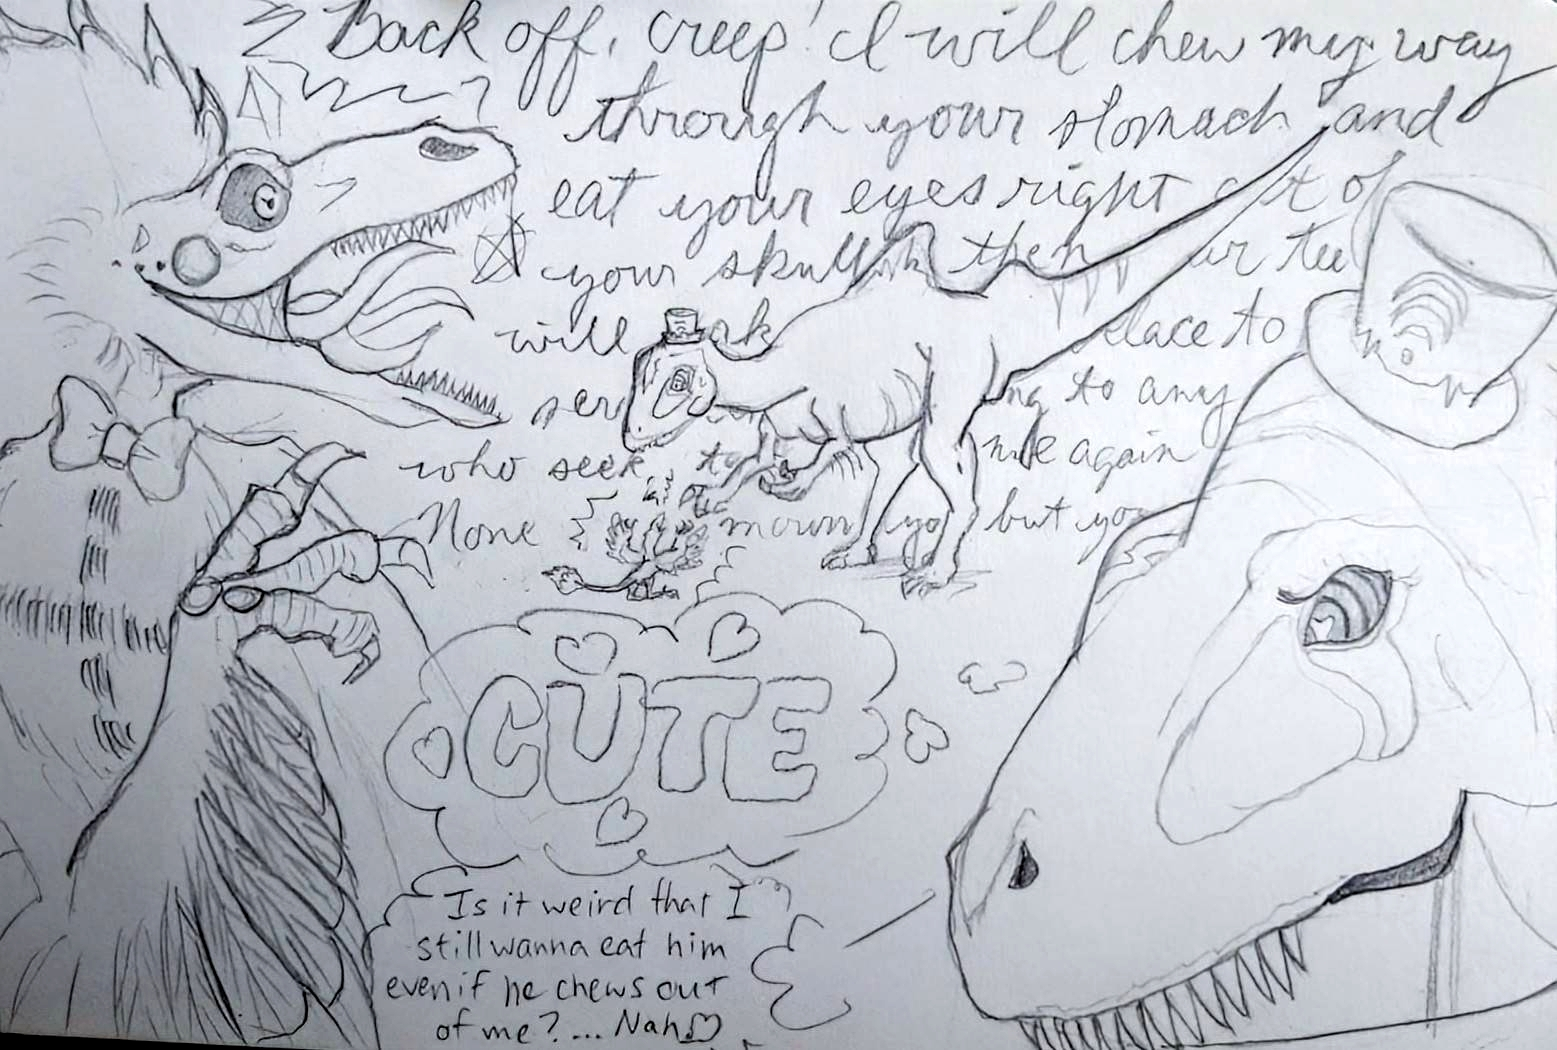 Back off, creep! I will chew my way
through your stomach and
eat your eyes right out of
your skull then ur tee
will ak place to
ser ng to any
who seek to me again
None mourn yo but yo
CUTE
Is it weird that I
still wanna eat him
even if he chews out
of me?... Nah♡